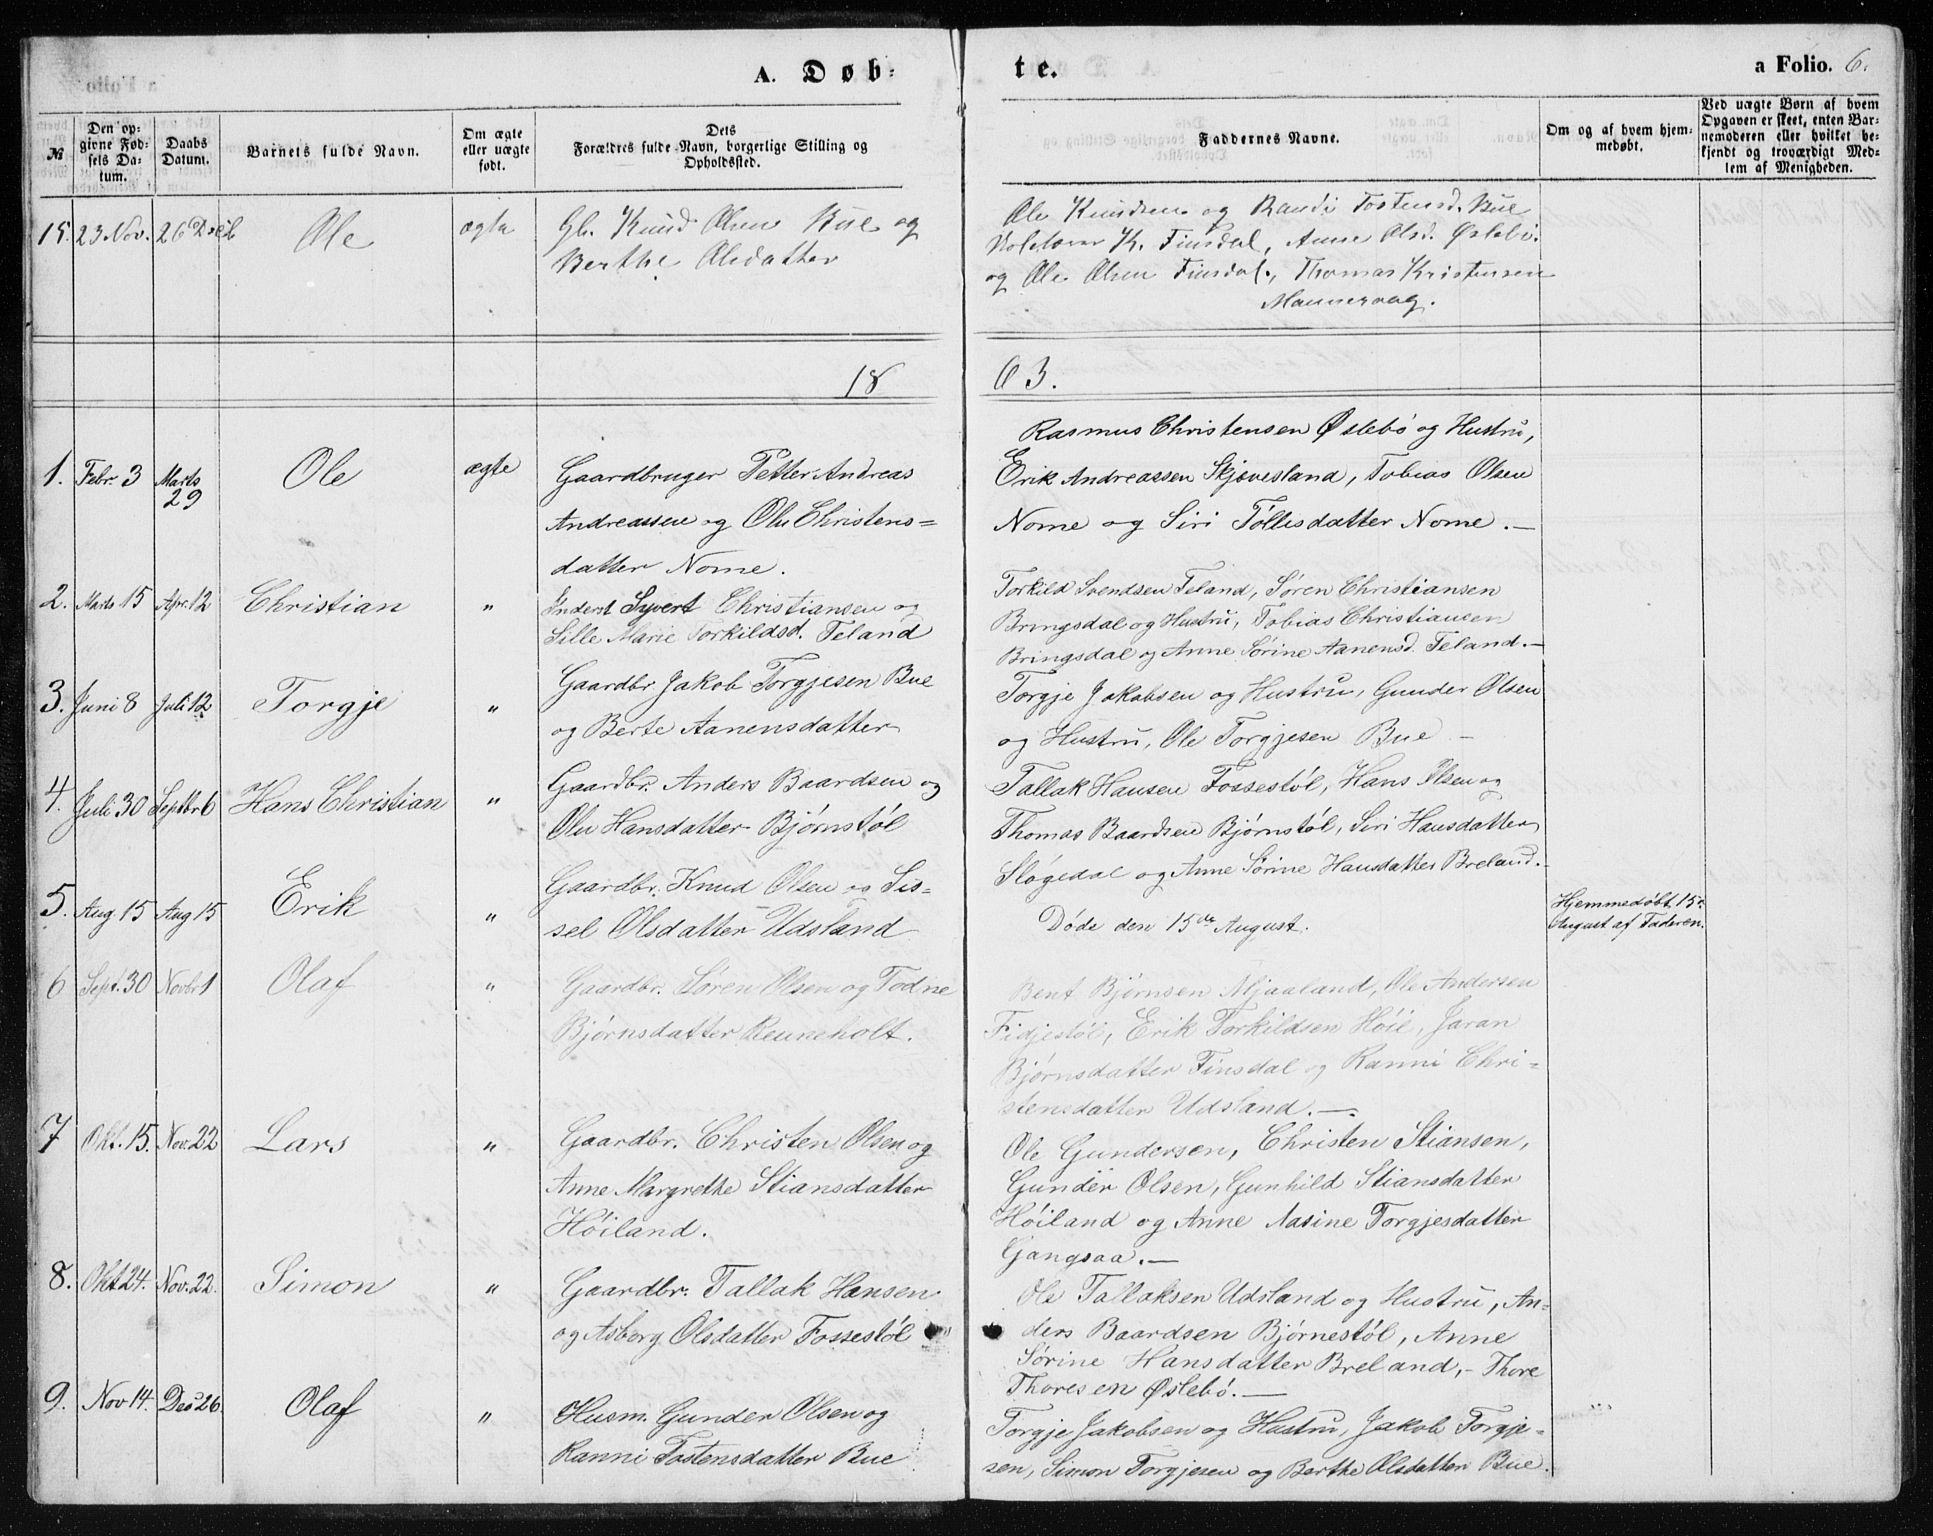 A. Døb-
te.
a Folio. 6.
№
Den op-
givne Fød-
sels Da-
tum.
Daabs
Datum.
Barnets fulde Navn.
Om ægte
eller uægte
født.
Dets
Forældres fulde Navn, borgerlige Stilling og
Opholdssted.
Faddernes Navne.
Om og af hvem hjem-
medøbt.
Ved uægte Børn af hvem
Opgaven er skeet, enten Bar-
nemoderen eller hvilket be-
kjendt og troværdigt Med-
lem af Menigheden.
15. 23 Nov. 26 Decb Ole ægte Gb. Knud Olsen Bue og
Berthe Olsdatter
Ole Knudsen og Randi Tostensd. Bue
K. Finsdal, Anne Olsd. Øslebö.
og Ole Olsen Finsdal, Thomas Kristensen
Mannevaag.
18
63.
1. Febr. 3 Marts
29
Ole ægte Gaardbruger Petter Andreas
Andreassen og Olu Christens=
datter Nome.
Rasmus Christensen Øslebö og Hustru,
Erik Andreassen Skjævesland, Tobias Olsen
Nome og Siri Töllesdatter Nome.—
2. Marts 15 Apr. 12 Christian " Inderst Syvert Christiansen og
Sille Marie Torkildsd. Feland
Torkild Svendsen Feland, Sören Christiansen
Bringsdal og Hustru, Tobias Christiansen
Bringsdal og Anne Sörine Aanensd. Feland.—
3. Juni 8 Juli 12 Torgje " Gaardbr. Jakob Torgjesen Bue
og Berte Aanensdatter
Torgje Jakobsen og Hustru, Gunder Olsen
og Hustru, Ole Torgjesen Bue —
4. Juli 30 Septbr 6 Hans Christian " Gaardbr. Anders Baardsen og
Olu Hansdatter Björnstöl
Tallak Hansen Fossestöl, Hans Olsen og
Thomas Baardsen Björnstöl, Siri Hansdatter
Slögedal og Anne Sörine Hansdatter Breland.—
5. Aug 15 Aug 15 Erik " Gaardbr. Knud Olsen og Sis=
sel Olsdatter Udsland
Döde den 15de August.
Hjemmedöbt 15de
August af Faderen.
6 Sept. 30 Novbr 1 Olaf " Gaardbr. Sören Olsen og Todne
Björnsdatter Reuneholt.
Bent Björnsen Mjaaland, Ole Andersen
Fidjestöl, Erik Torkildsen Höie, Jaran
Björnsdatter Finsdal og Ranni Chri=
stensdatter Udsland.—
7 Okt. 15. Nov. 22 Lars " Gaardbr. Christen Olsen og
Anne Margrethe Stiansdatter
Höiland.
Ole Gundersen, Christen Stiansen,
Gunder Olsen, Gunhild Stiansdatter
Höiland og Anne Nasine Torgjesdatter
Gangsaa.—
8. Okt 24. Nov. 22. Simon " Gaardbr. Tallak Hansen
og Asborg Olsdatter Fossestöl
Ole Tallaksen Udsland og Hustru, An=
ders Baardsen Björnestöl, Anne
Sörine Hansdatter Breland,- Thore
Thoresen Øslebö.—
9. Nov 14. Dec 26. Olaf " Husm. Gunder Olsen og
Ranni Tostensdatter Bue
Torgje Jakobsen og Hustru, Jakob Torgje=
sen, Simon Torgjesen og Berthe Olsdatter Bue.